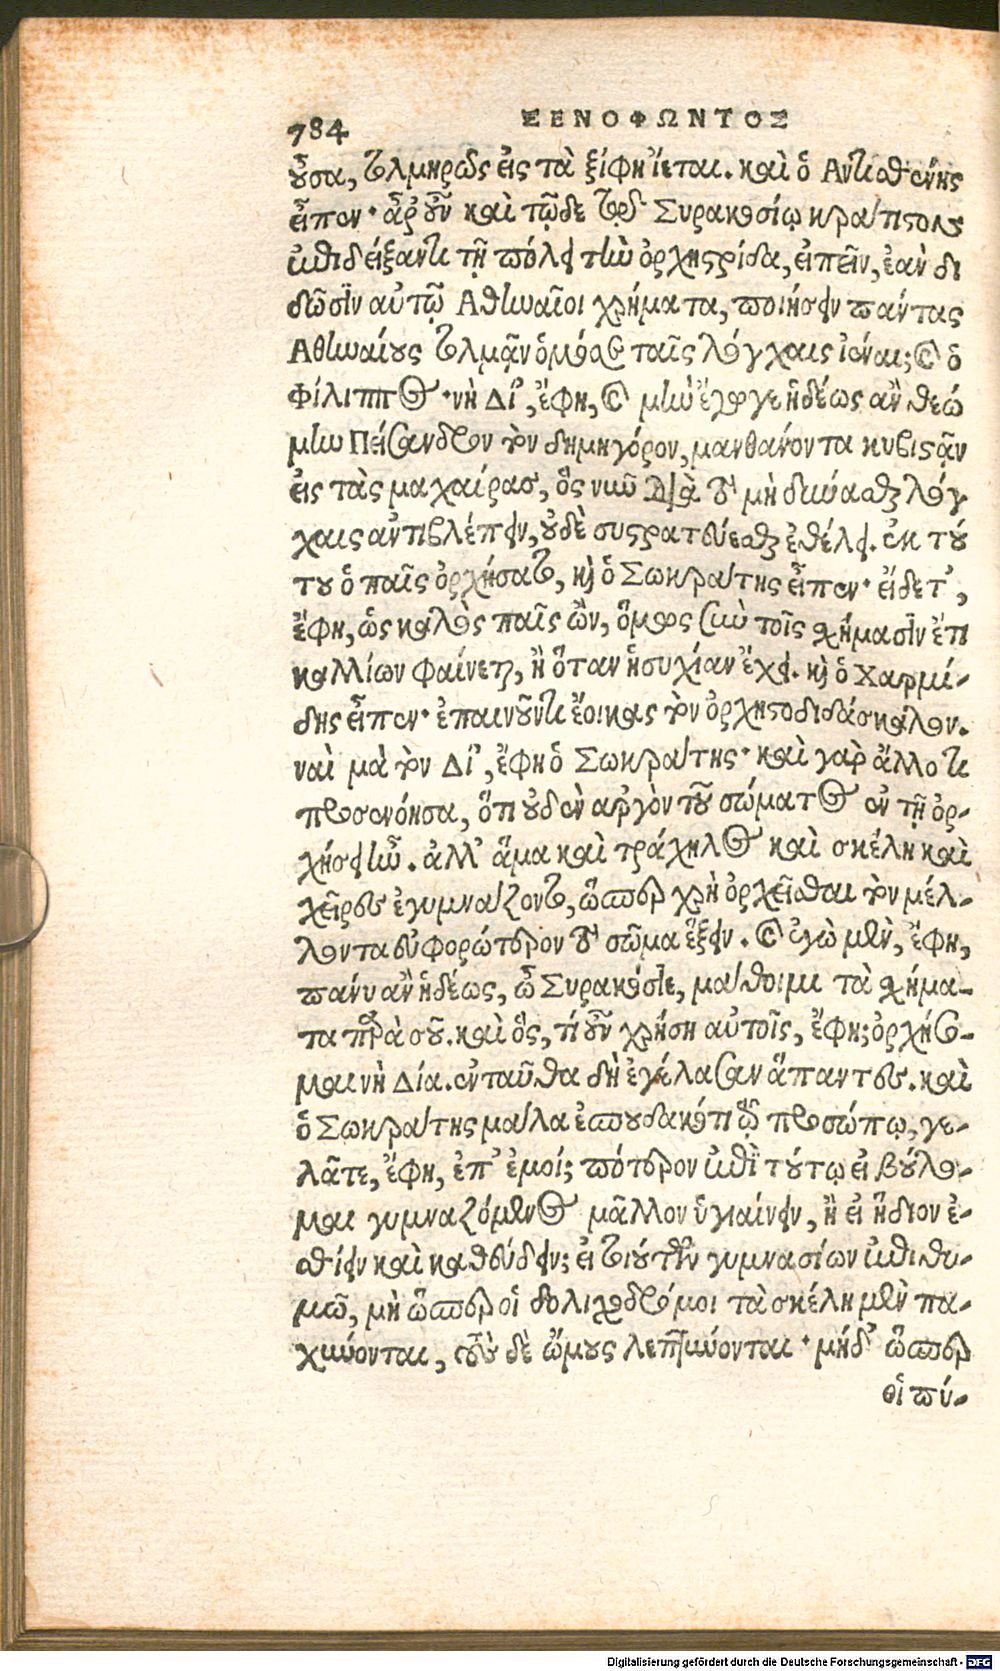 784
ΞΕΝΟΦΩΝΤΟΣ
οὖσα, τολμηρῶς εἰς τὰ ξίφη ἵεται. καὶ ὁ Αντισθένης
εἶπεν· ἆρ' οὖν καὶ τῷδε τῷ Συρακουσίῳ κράτιστον
ἐπιδείξαντι τῇ πόλει τὴν ὀρχηστρίδα, εἰπεῖν, ἐὰν δι
δῶσιν αὐτῷ Αθηναῖοι χρήματα, ποιήσειν πάντας
Αθηναίους τολμᾷν ὁμόσε ταῖς λόγχαις ἰέναι; καὶ ὁ
Φίλιππος· νὴ Δί', ἔφη, καὶ μὴν ἔγωγε ἡδέως ἂν θεῴ
μην Πείσανδρον τὸν δημηγόρον, μανθάνοντα κυβιστᾷν
εἰς τὰς μαχαίρας, ὃς νῦν διὰ τὸ μὴ δύνασθαι λόγ
χαις ἀντιβλέπειν, οὐδὲ συστρατεύεσθαι ἐθέλει. ἐκ τού
του ὁ παῖς ὀρχήσατο, καὶ ὁ Σωκράτης εἶπεν· εἴδετ',
ἔφη, ὡς καλὸς παῖς ὢν, ὅμως σὺν τοῖς σχήμασιν ἔτι
καλλίων φαίνεται, ἢ ὅταν ἡσυχίαν ἔχῃ. καὶ ὁ Χαρμί-
δης εἶπεν· ἐπαινοῦντι ἔοικας τὸν ὀρχηστοδιδάσκαλον.
ναὶ μὰ τὸν Δί', ἔφη ὁ Σωκράτης· καὶ γὰρ ἄλλο τι
προσενόησα, ὅτι οὐδὲν ἀργὸν τοῦ σώματος ἐν τῇ ὀρ-
χήσει ἦν. ἀλλ' ἅμα καὶ τράχηλος καὶ σκέλη καὶ
χεῖρες ἐγυμνάζοντο, ὥσπερ χρὴ ὀρχεῖσθαι τὸν μέλ-
λοντα εὐφορώτερον τὸ σῶμα ἕξειν. καὶ ἐγὼ μὲν, ἔφη,
πάνυ ἂν ἡδέως, ὦ Συρακόσιε, μάθοιμι τὰ σχήμα-
τα παρὰ σοῦ. καὶ ὃς, τί οὖν χρήση αὐτοῖς, ἔφη; ὀρχήσο-
μαι νὴ Δία. ἐνταῦθα δὴ ἐγέλασαν ἅπαντες. καὶ
ὁ Σωκράτης μάλα ἐσπουδακότι τῷ προσώπῳ, γε-
λᾶτε, ἔφη, ἐπ' ἐμοί; πότερον ἐπὶ τούτῳ εἰ βούλο-
μαι γυμναζόμενος μᾶλλον ὑγιαίνειν, ἢ εἰ ἥδιον ἐ-
σθίειν καὶ καθεύδειν; εἰ τοιούτων γυμνασίων ἐπιθυ-
μῶ, μὴ ὥσπερ οἱ δολιχοδρόμοι τὰ σκέλη μὲν πα-
χύνονται, τοὺς δὲ ὤμους λεπτύνονται· μήδ' ὥσπερ
οἱ πύ-
Digitalisierung gefördert durch die Deutsche Forschungsgemeinschaft - DFG